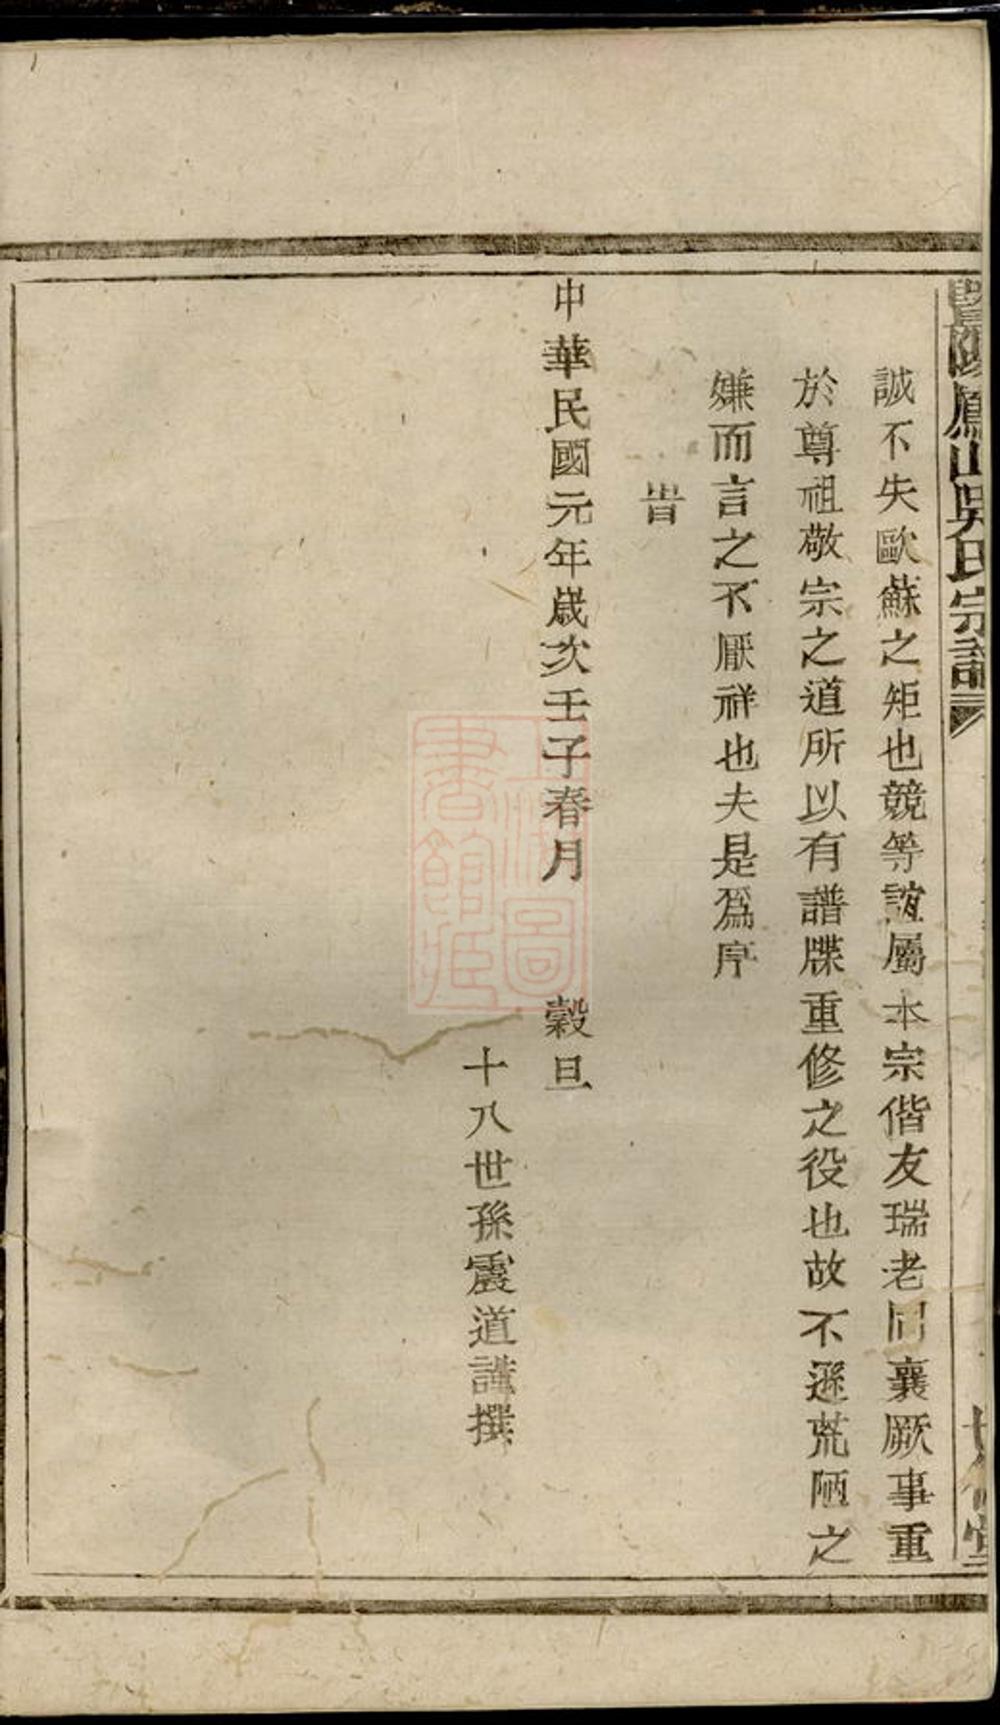 暨陽鳳山吳氏宗譜
誠不失歐蘇之矩也競等誼屬本宗偕友瑞老同襄厥事重
於尊祖敬宗之道所以有譜牒重修之役也故不遜荒陋之
嫌而言之不厭祥也夫是爲序
旹
中華民國元年歲次壬子春月 穀旦
十八世孫震道謹撰
上海圖書館藏